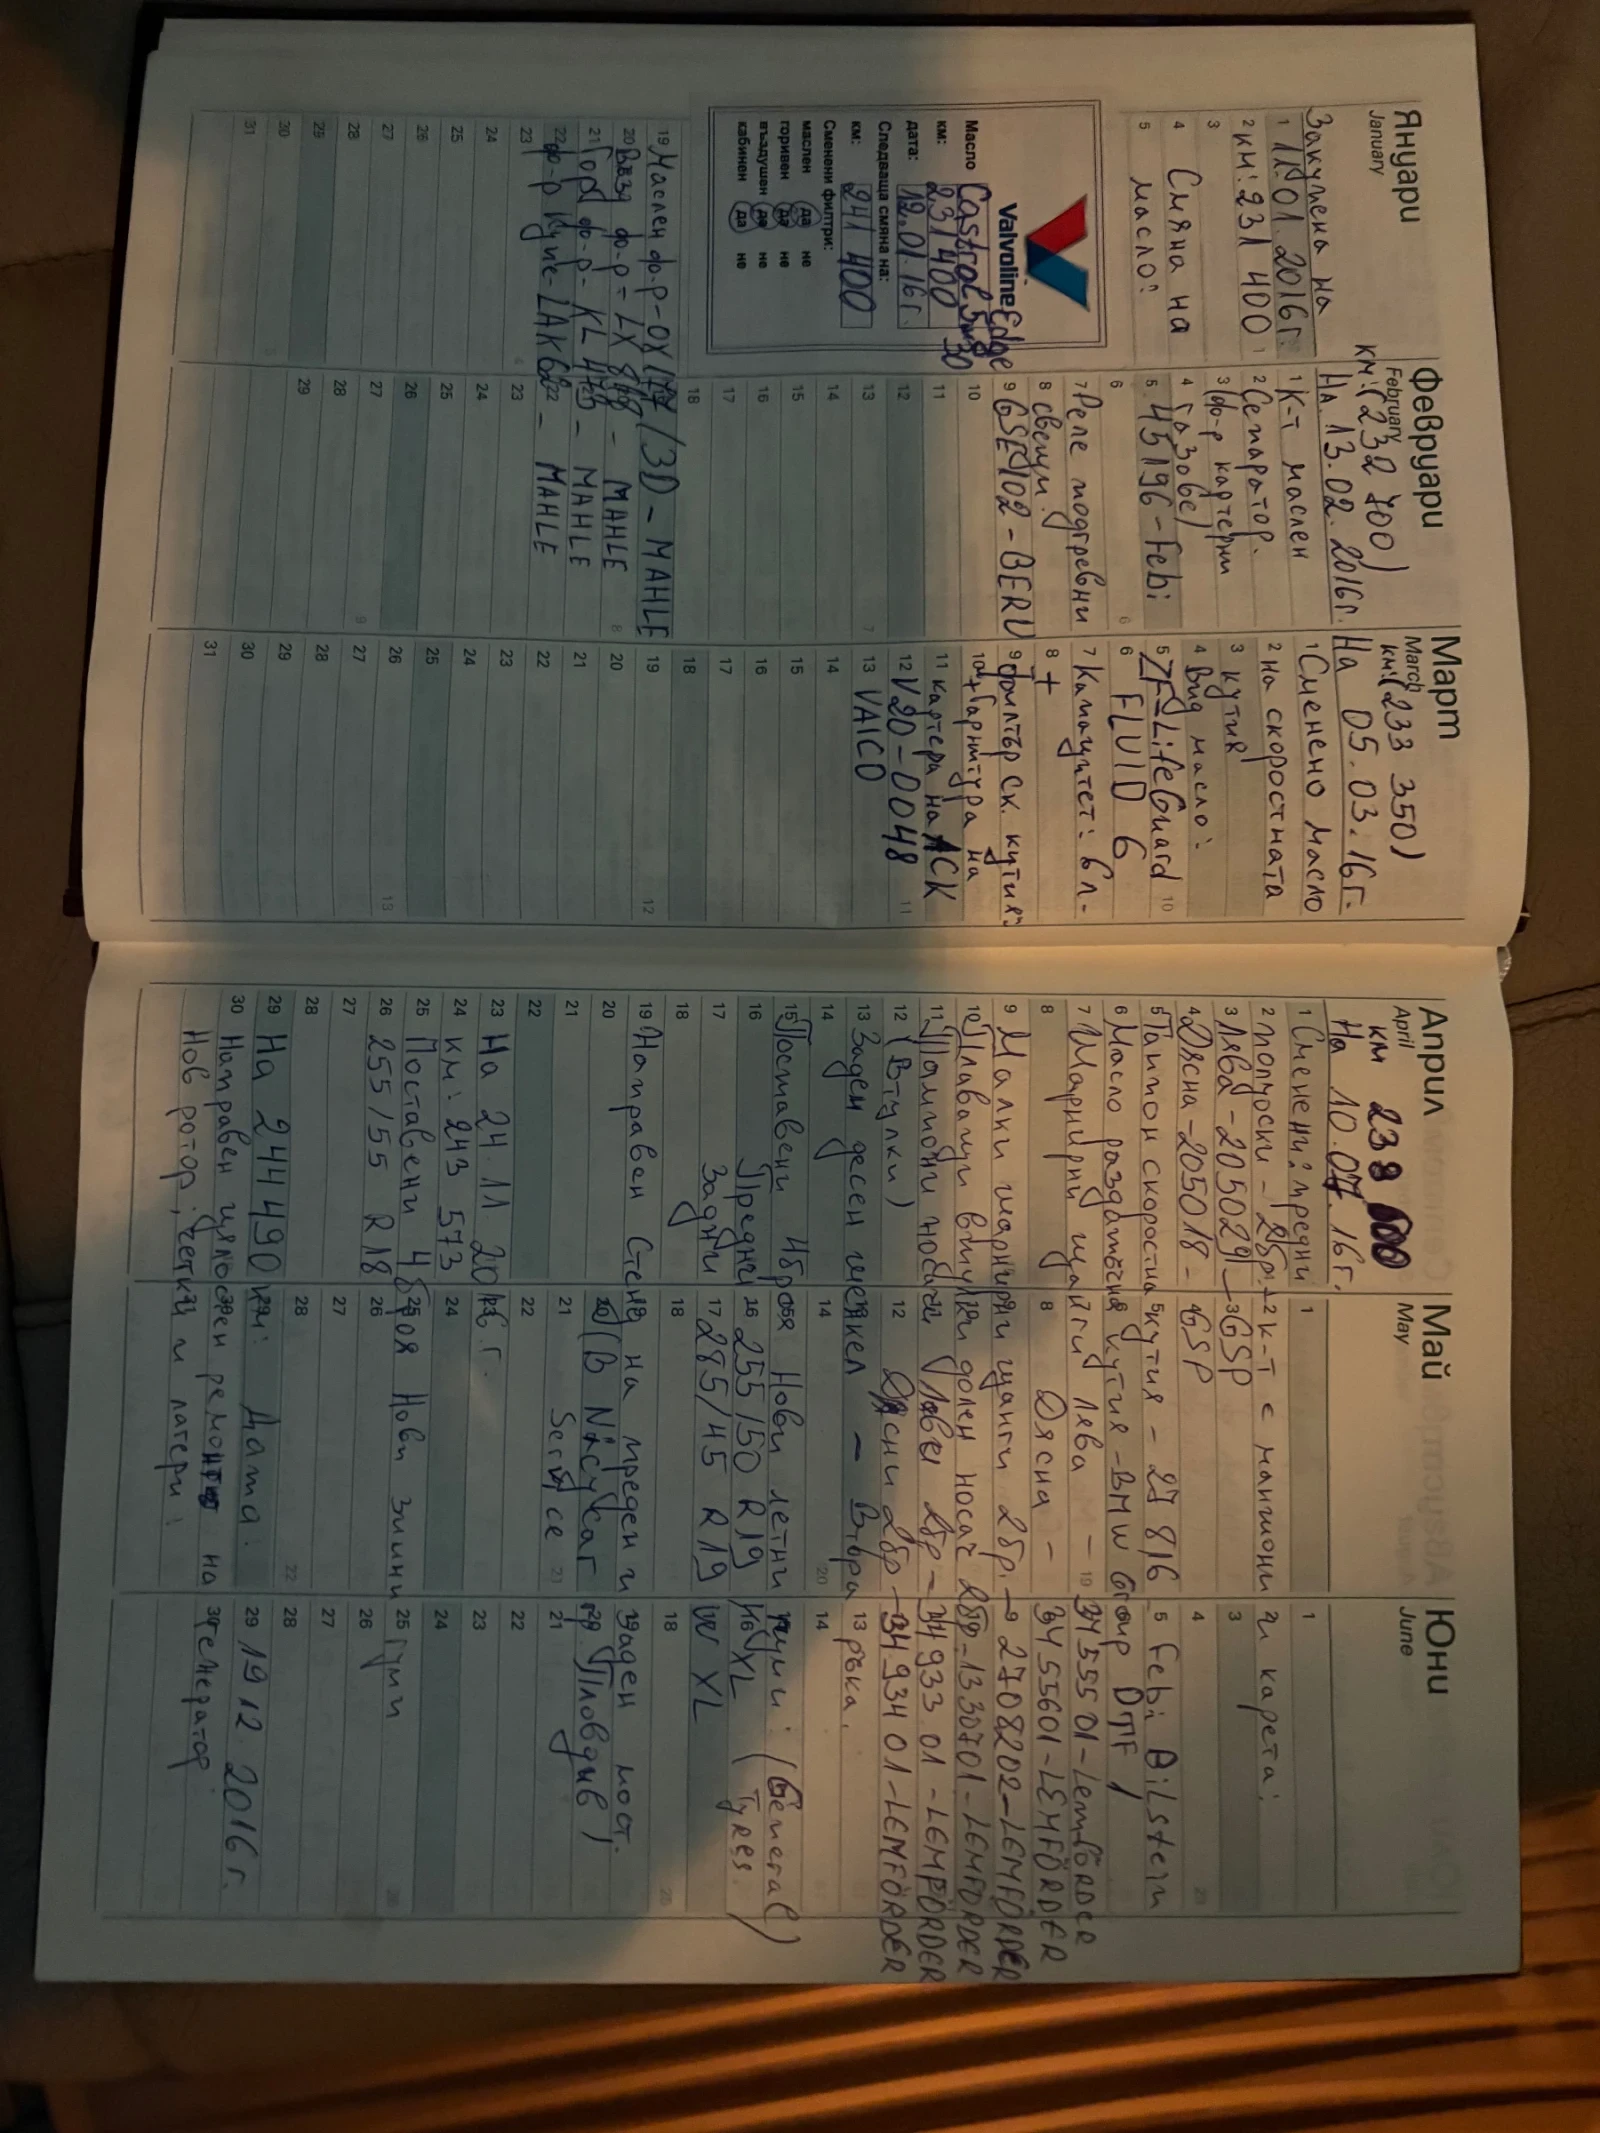 Януари
January
Закупена на
1 11.01.2016г.
2 км: 231 400
3
4 Смяна на
5 масло:
Valvoline Edge
Масло Castrol 5W30
км: 231400
дата: 12.01.16г.
Следваща смяна на:
км: 241 400
Сменени филтри:
маслен да не
горивен да не
въздушен да не
кабинен да не
19 Маслен ф-р - OX /3D - MAHLE
20 Възд ф-р - LX - MAHLE
21 Гор. ф-р - KL - MAHLE
22 ф-р купе - LAK - MAHLE
23
24
25
26
27
28
29
30
31
Февруари
February
км: (232 700)
На 13.02.2016г.
1 К-т маслен
2 Сепаратор.
3 (ф-р картерни
4 газове)
5 45196 - Febi
6
7 Реле подгревни
8 свещи.
9 GSE102 - BERU
10
11
12
13
14
15
16
17
18
23
24
25
26
27
28
29
Март
March
км: (233 350)
На 05.03.16г.
1 Сменено масло
2 на скоростната
3 кутия
4 Вид масло:
5 ZF-LifeGuard
6 FLUID 6
7 Капацитет: 6 л.
8 +
9 Филтър ск. кутия
10 + гарнитура на
11 картера на АСК
12 V20-0048
13 VAICO
14
15
16
17
18
19
20
21
22
23
24
25
26
27
28
29
30
31
Април Май Юни
April May June
км
На 10.07.16г.
1 Сменени: предни
2 полуоски - 2бр. + 2 к-т с маншони и карета:
3 Лява - 205029 - GSP
4 Дясна - 205018 - GSP
5 Тампон скоростна кутия - 27816 - Febi Bilstein
6 Масло раздатъчна кутия - BMW Group DTF 1
7 Шарнирни щанги лява - 3455501 - Lemförder
8 Дясна - 3455601 - LEMFÖRDER
9 Малки шарнирни щанги 2бр. - 2708202 - LEMFÖRDER
10 Плаващи втулки долен носач 2бр - 1330701 - LEMFÖRDER
11 Тампони носачи Леви 2бр - 3493301 - LEMFÖRDER
12 (Втулки) Десни 2бр - 3493401 - LEMFÖRDER
13 Заден десен шенкел - Втора ръка.
14
15 Поставени 4броя Нови летни гуми: (General
16 Предни 255/50 R19 XL Tyres)
17 Задни 285/45 R19 W XL
18
19 Направен Стенд на преден и заден мост.
20 (В Nicycar гр. Пловдив)
21 Service
22
23 На 24.11.2016г.
24 км: 243 573
25 Поставени 4броя Нови зимни гуми
26 255/55 R18
27
28
29 На 244490 км. Дата: 19.12.2016г.
30 Направен цялостен ремонт на генератор
Нов ротор, четки и лагери.